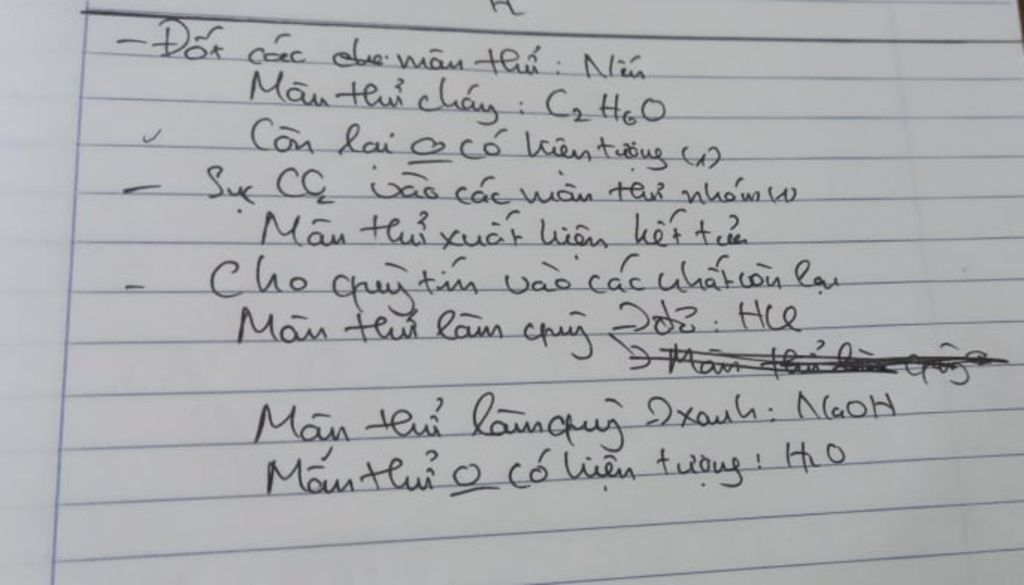 - Đốt các mẫu thử: Nếu
Mẫu thử cháy: C₂H₆O
Còn lại O có hiện tượng (1)
- Sục CO₂ vào các mẫu thử nhóm (1)
Mẫu thử xuất hiện kết tủa
- Cho quỳ tím vào các chất còn lại
Mẫu thử làm quỳ → đỏ: HCl
Mẫu thử làm quỳ → xanh: NaOH
Mẫu thử O có hiện tượng: H₂O